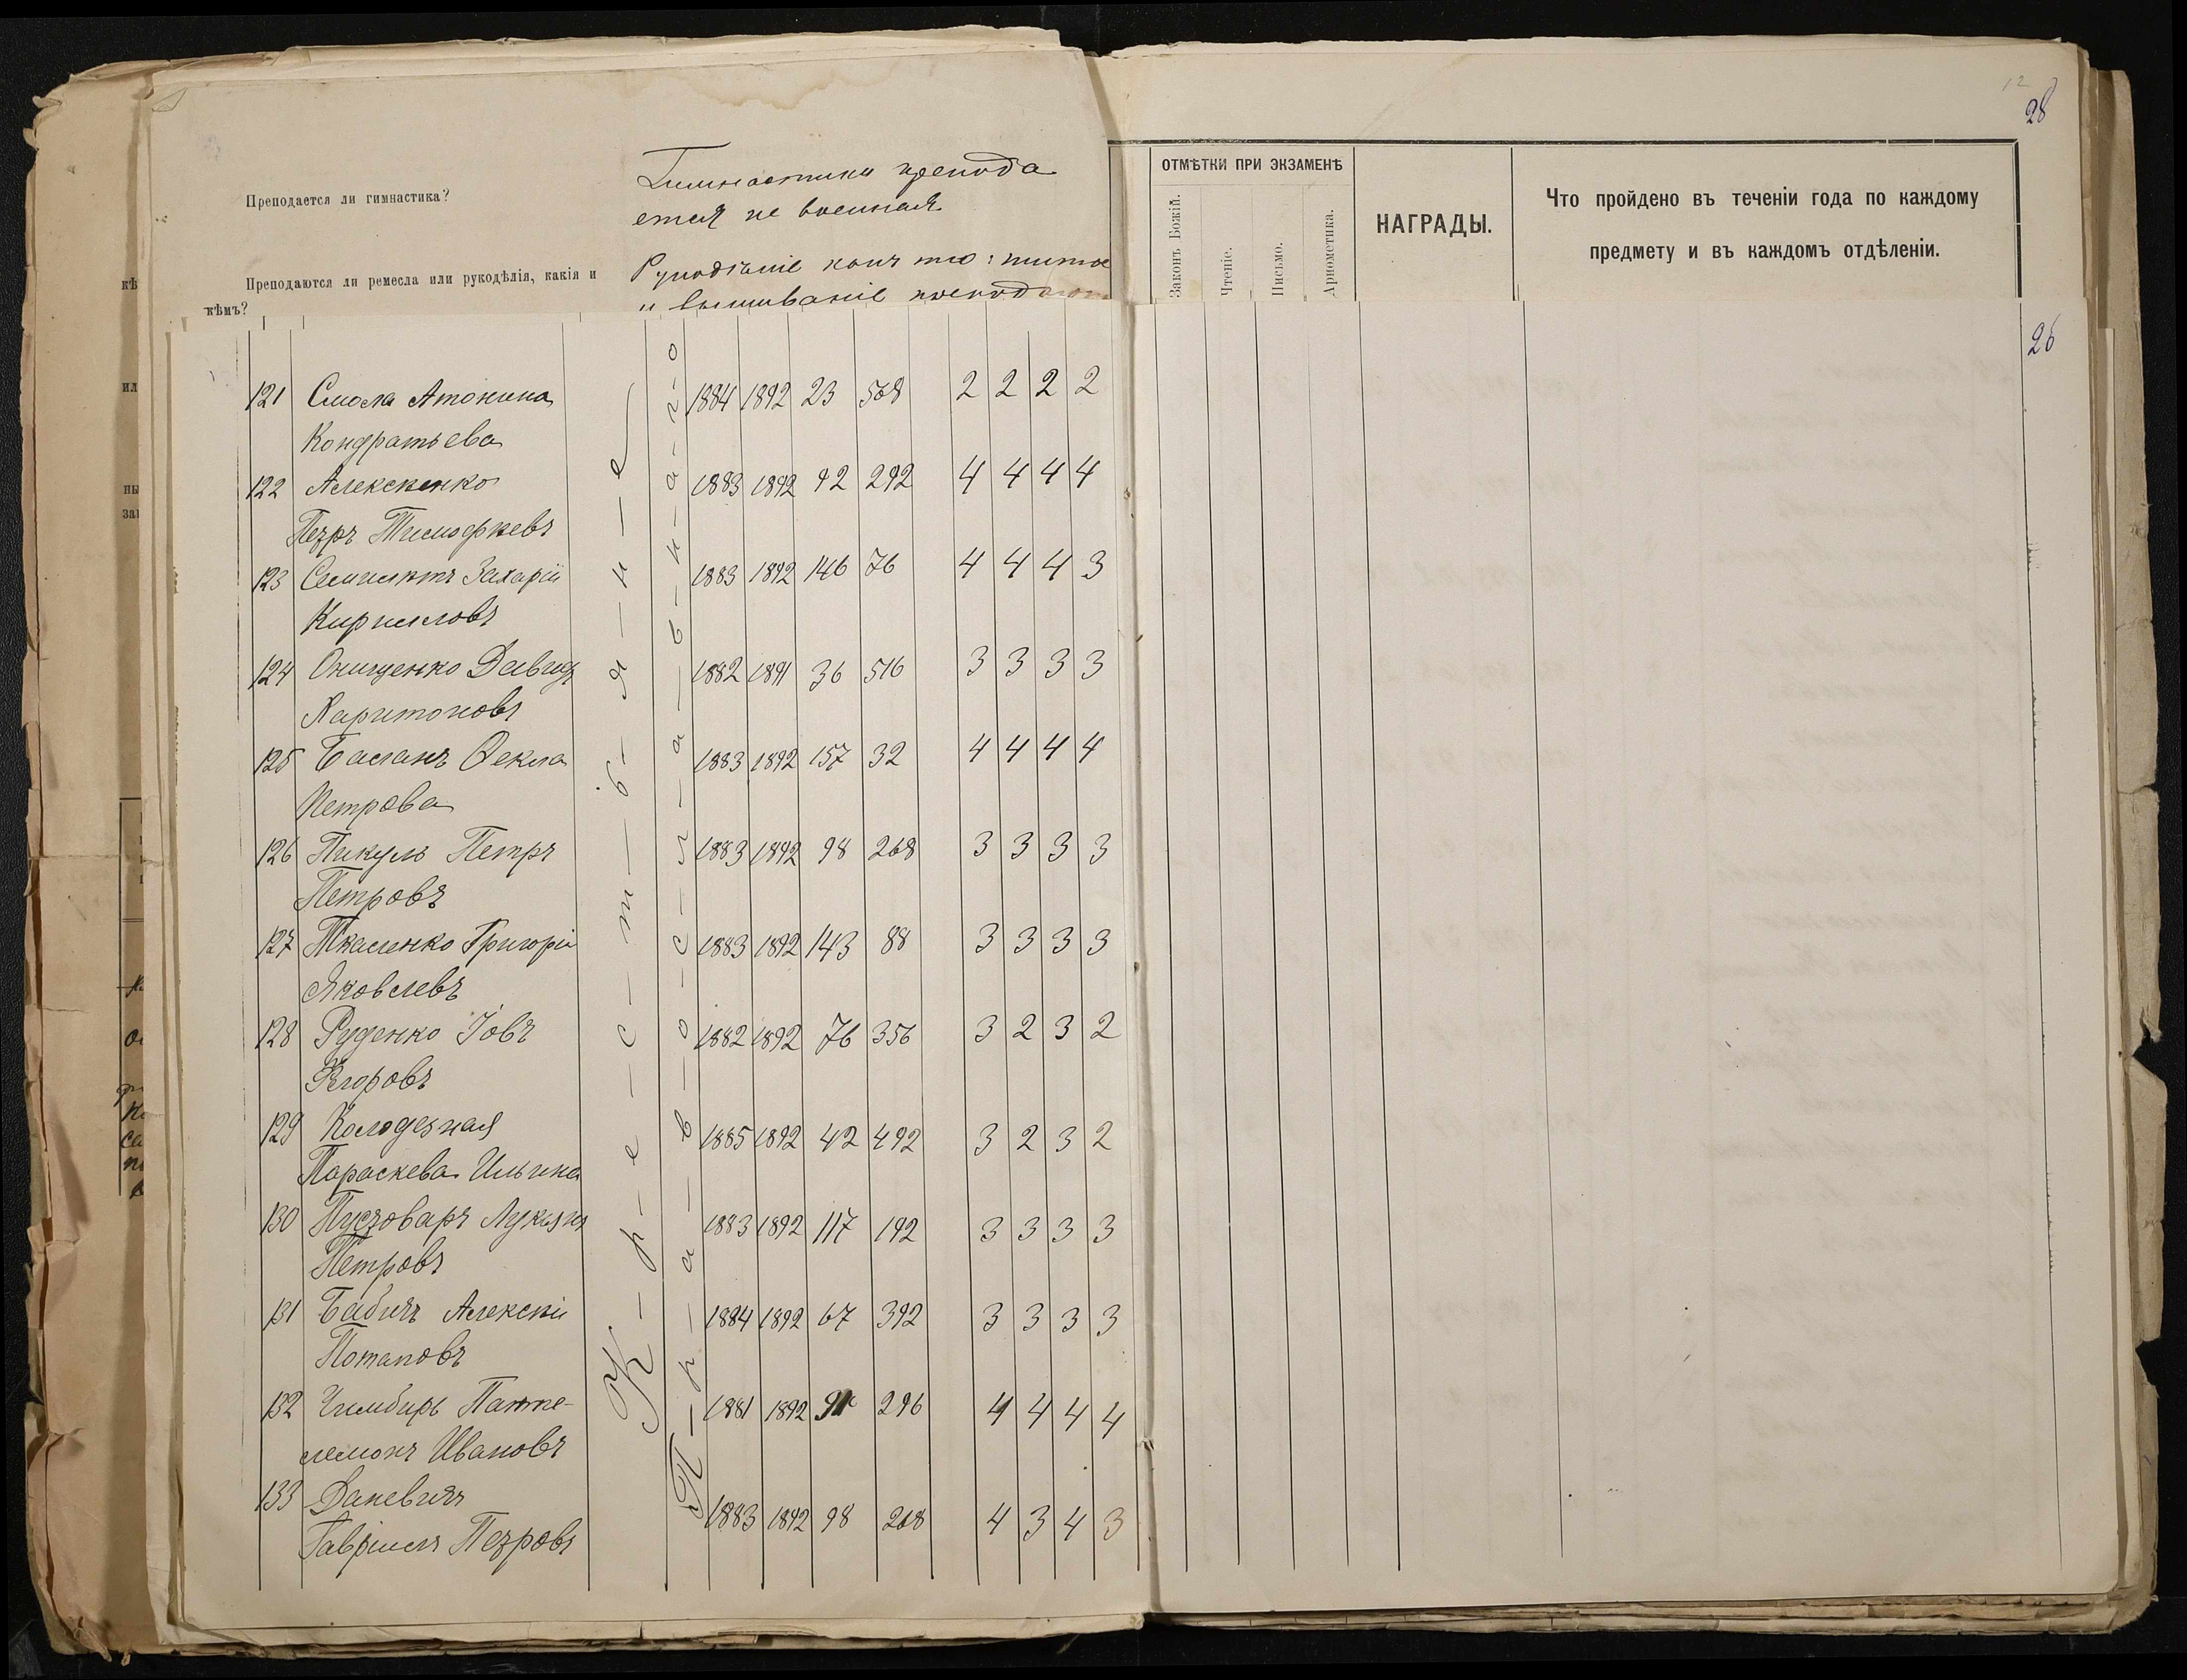 12
28
Преподается ли гимнастика?
Гимнастики препода
ется не военная
Преподаются ли ремесла или рукодѣлія, какія и
кѣмъ?
Рукодѣліе какъ то: шитье
и вышиваніе преподают
ОТМѢТКИ ПРИ ЭКЗАМЕНѢ
Законъ Божій.
Чтеніе.
Письмо.
Ариѳметика.
НАГРАДЫ.
Что пройдено въ теченіи года по каждому
предмету и въ каждомъ отдѣленіи.
26
К-р-е-с-т-ь-я-н-е
П-р-а-в-о-с-л-а-в-н-а-г-о
121 Смола Атонина 1884 1892 23 568 2 2 2 2
Кондратьева
122 Алексѣенко 1883 1892 92 292 4 4 4 4
Петръ Тимофѣевъ
123 Захарій 1883 1892 146 76 4 4 4 3
Кирилловъ
124 Онищенко Давидъ 1882 1891 36 516 3 3 3 3
Харитоновъ
125 Баланъ Ѳекла 1883 1892 157 32 4 4 4 4
Петрова
126 Пикуль Петръ 1883 1892 98 268 3 3 3 3
Петровъ
127 Ткаленко Григорій 1883 1892 143 88 3 3 3 3
Яковлевъ
128 Руденко Іовъ 1882 1892 76 356 3 2 3 2
Егоровъ
129 Колодезная 1885 1892 42 492 3 2 3 2
Параскева Ильина
130 Пустоваръ Лукіянъ 1883 1892 117 192 3 3 3 3
Петровъ
131 Бабичъ Алексѣй 1884 1892 67 392 3 3 3 3
Потаповъ
132 Чимбирь Панте- 1881 1892 296 4 4 4 4
леймонъ Ивановъ
133 Даневичъ 1883 1892 98 268 4 3 4 3
Гавріилъ Петровъ